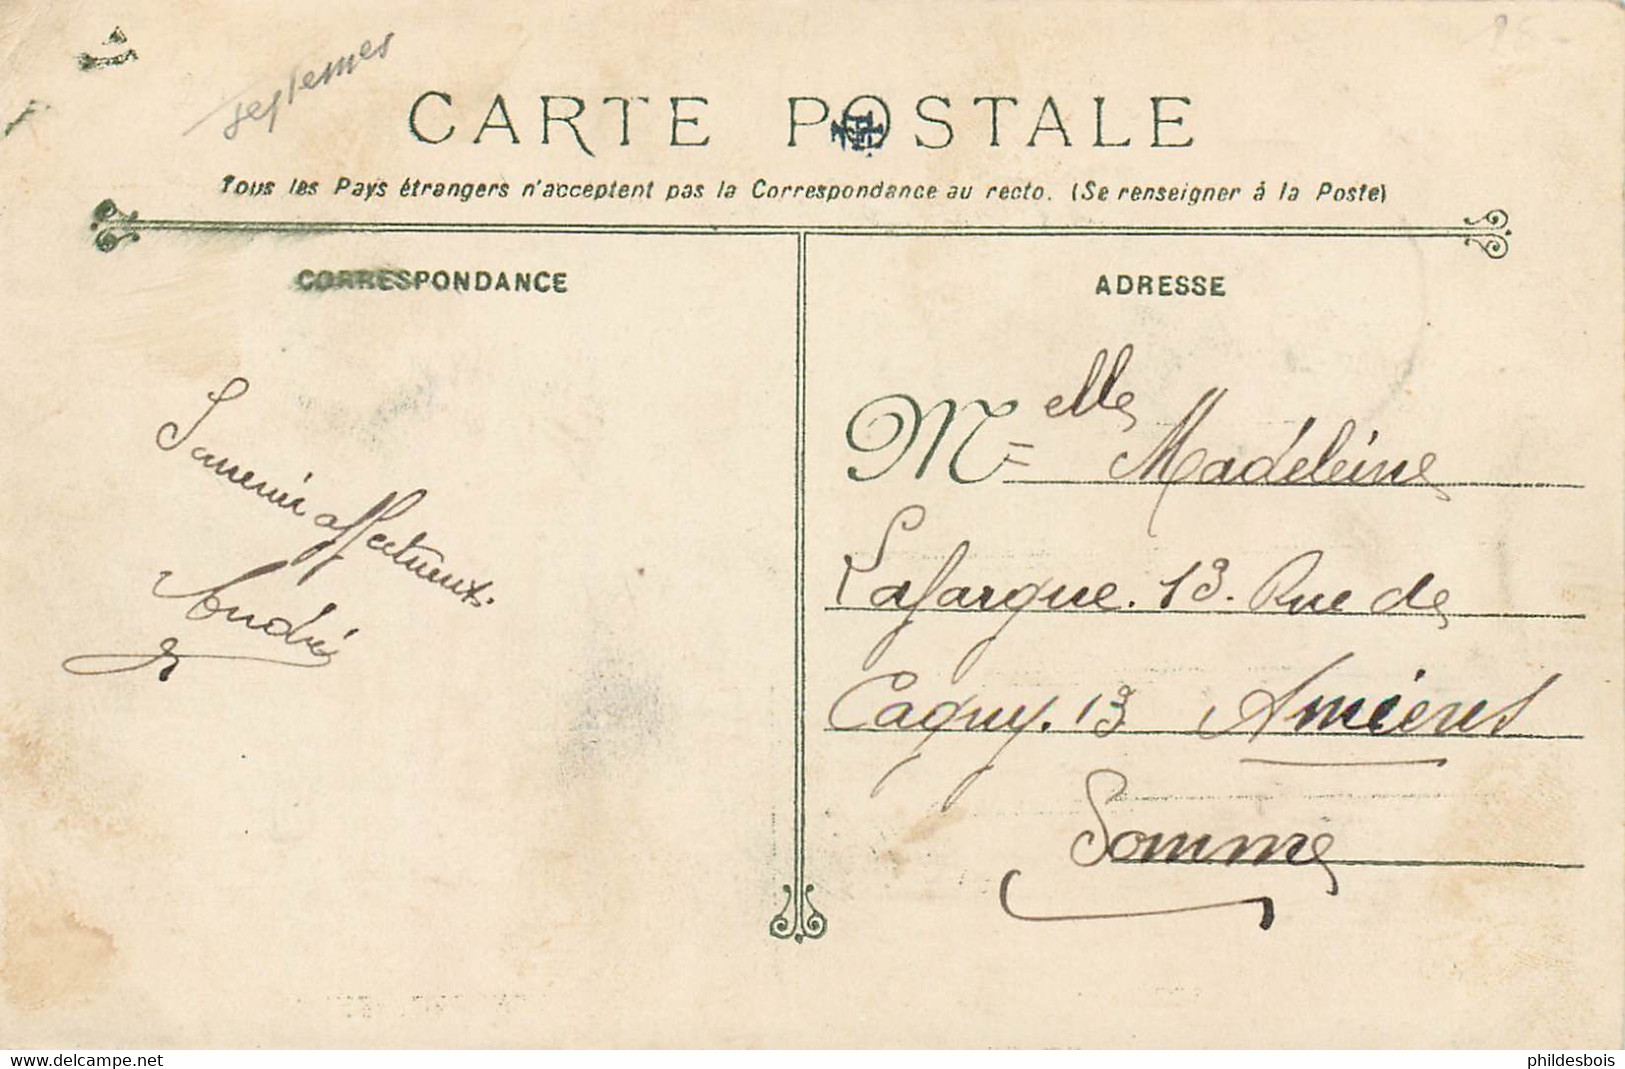 septemes
85-
CARTE POSTALE
Tous les Pays étrangers n'acceptent pas la Correspondance au recto. (Se renseigner à la Poste)
CORRESPONDANCE
Souvenir affectueux.
André
ADRESSE
Melle Madeleine
Lafargue. 13. Rue de
Cagny. 13 Amiens
Somme
delcampe.net
phildesbois